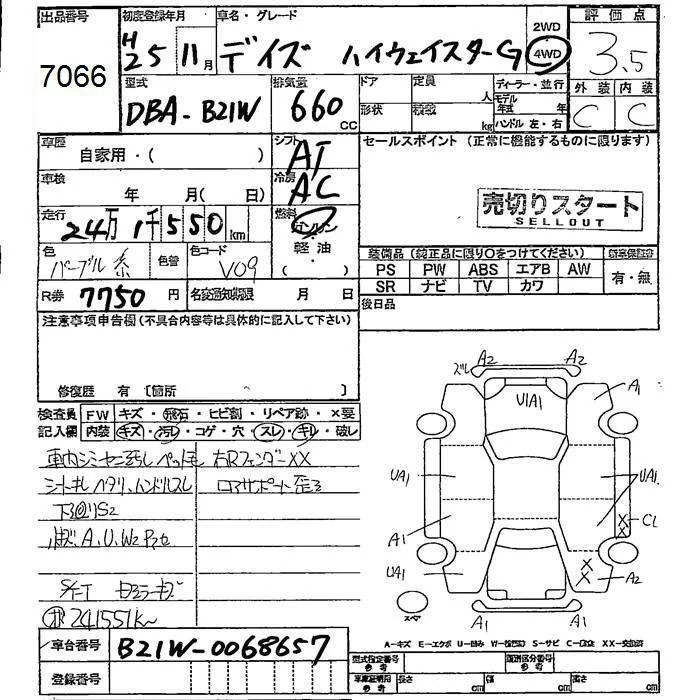 出品番号 初度登録年月 車名・グレード 2WD 評価点
7066 H25 11月 デイズ ハイウェイスターG 4WD 3.5
型式 排気量 ドア 定員 人 ディーラー・並行 外装 内装
DBA-B21W 660cc 形状 積載 kg モデル年式 年 ハンドル 左・右 C C
車歴 自家用・( ) シフト AT セールスポイント(正常に機能するものに限ります)
車検 年 月( 日) 冷房 AC
売切りスタート
SELLOUT
走行 24万1千550km 燃料 ガソリン・軽油
色 パープル系 色替 色コード V09 装備品(純正品に限り○をつけてください) 新車保証書
PS PW ABS エアB AW 有・無
SR ナビ TV カワ
R券 7750円 名変通知期限 月 日 後日品
注意事項申告欄(不具合内容等は具体的に記入して下さい)
修復歴 有〔箇所 〕
検査員 FW キズ・飛石・ヒビ割・リペア跡・×要
記入欄 内装 キズ・汚レ・コゲ・穴・スレ・キレ・破レ
右Rフェンダー XX
ハンドルスレ
下廻りS2
A.U.W2
241551k
車台番号 B21W-0068657
登録番号
ズレ A2 A2
U1A1
A1
UA1 UA1
XX C1
A1
U4A1 XX A2
スペア A1 A1
A-キズ E-エクボ U-凹み S-サビ XX-交換済
型式指定番号 参考 類別区分番号 参考
車庫証明用 参考 長さ cm 幅 cm 高さ cm